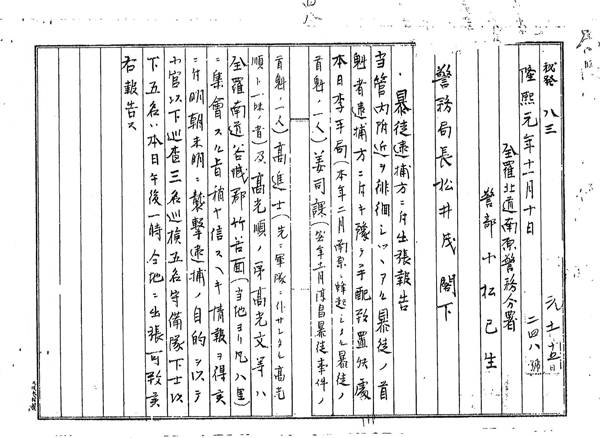 秘発 八三
隆熙元年十二月十日
全羅北道南原警務分署
警部 小松己生
警務局長松井茂 閣下
暴徒逮捕方ニ付出張報告
当管内附近ヲ徘徊シツヽアル暴徒ノ首
魁者逮捕方ニ付予テ手配致置候処
本日李平局(本年二月南原ニ蜂起シタル暴徒ノ
首魁ノ一人)姜司課(本年十二月淳昌暴徒事件ノ
首魁ノ一人)高進士(先ニ軍隊ニ仆サレタル高光
順ト一味ノ者)及高光順ノ弟高光文等ハ
全羅南道谷城郡竹谷面(当地ヨリ凡八里)
ニ集會スル旨稍々信スヘキ情報ヲ得候
ニ付明朝未明ニ襲撃逮捕ノ目的ヲ以テ
小官以下巡査三名巡檢五名守備隊下士以
下五名ハ本日午後一時今地ニ出張可致候
右報告ス